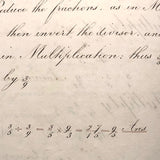 duce the fractions, as in M
then invert the divisor, and
in Multiplication; thus 3/5
by 3/9
3/5 ÷ 3/9 = 3/5 × 9/3 = 27/15 = 9/5 Ans